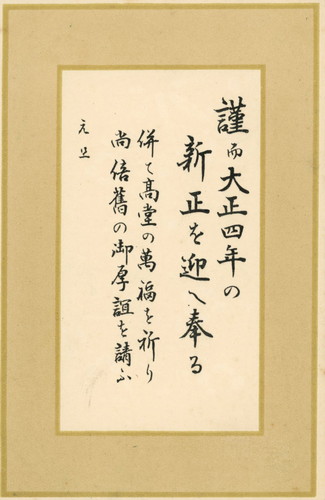 謹而大正四年の
新正を迎へ奉る
併て高堂の萬福を祈り
尚倍舊の御厚誼を請ふ
元旦